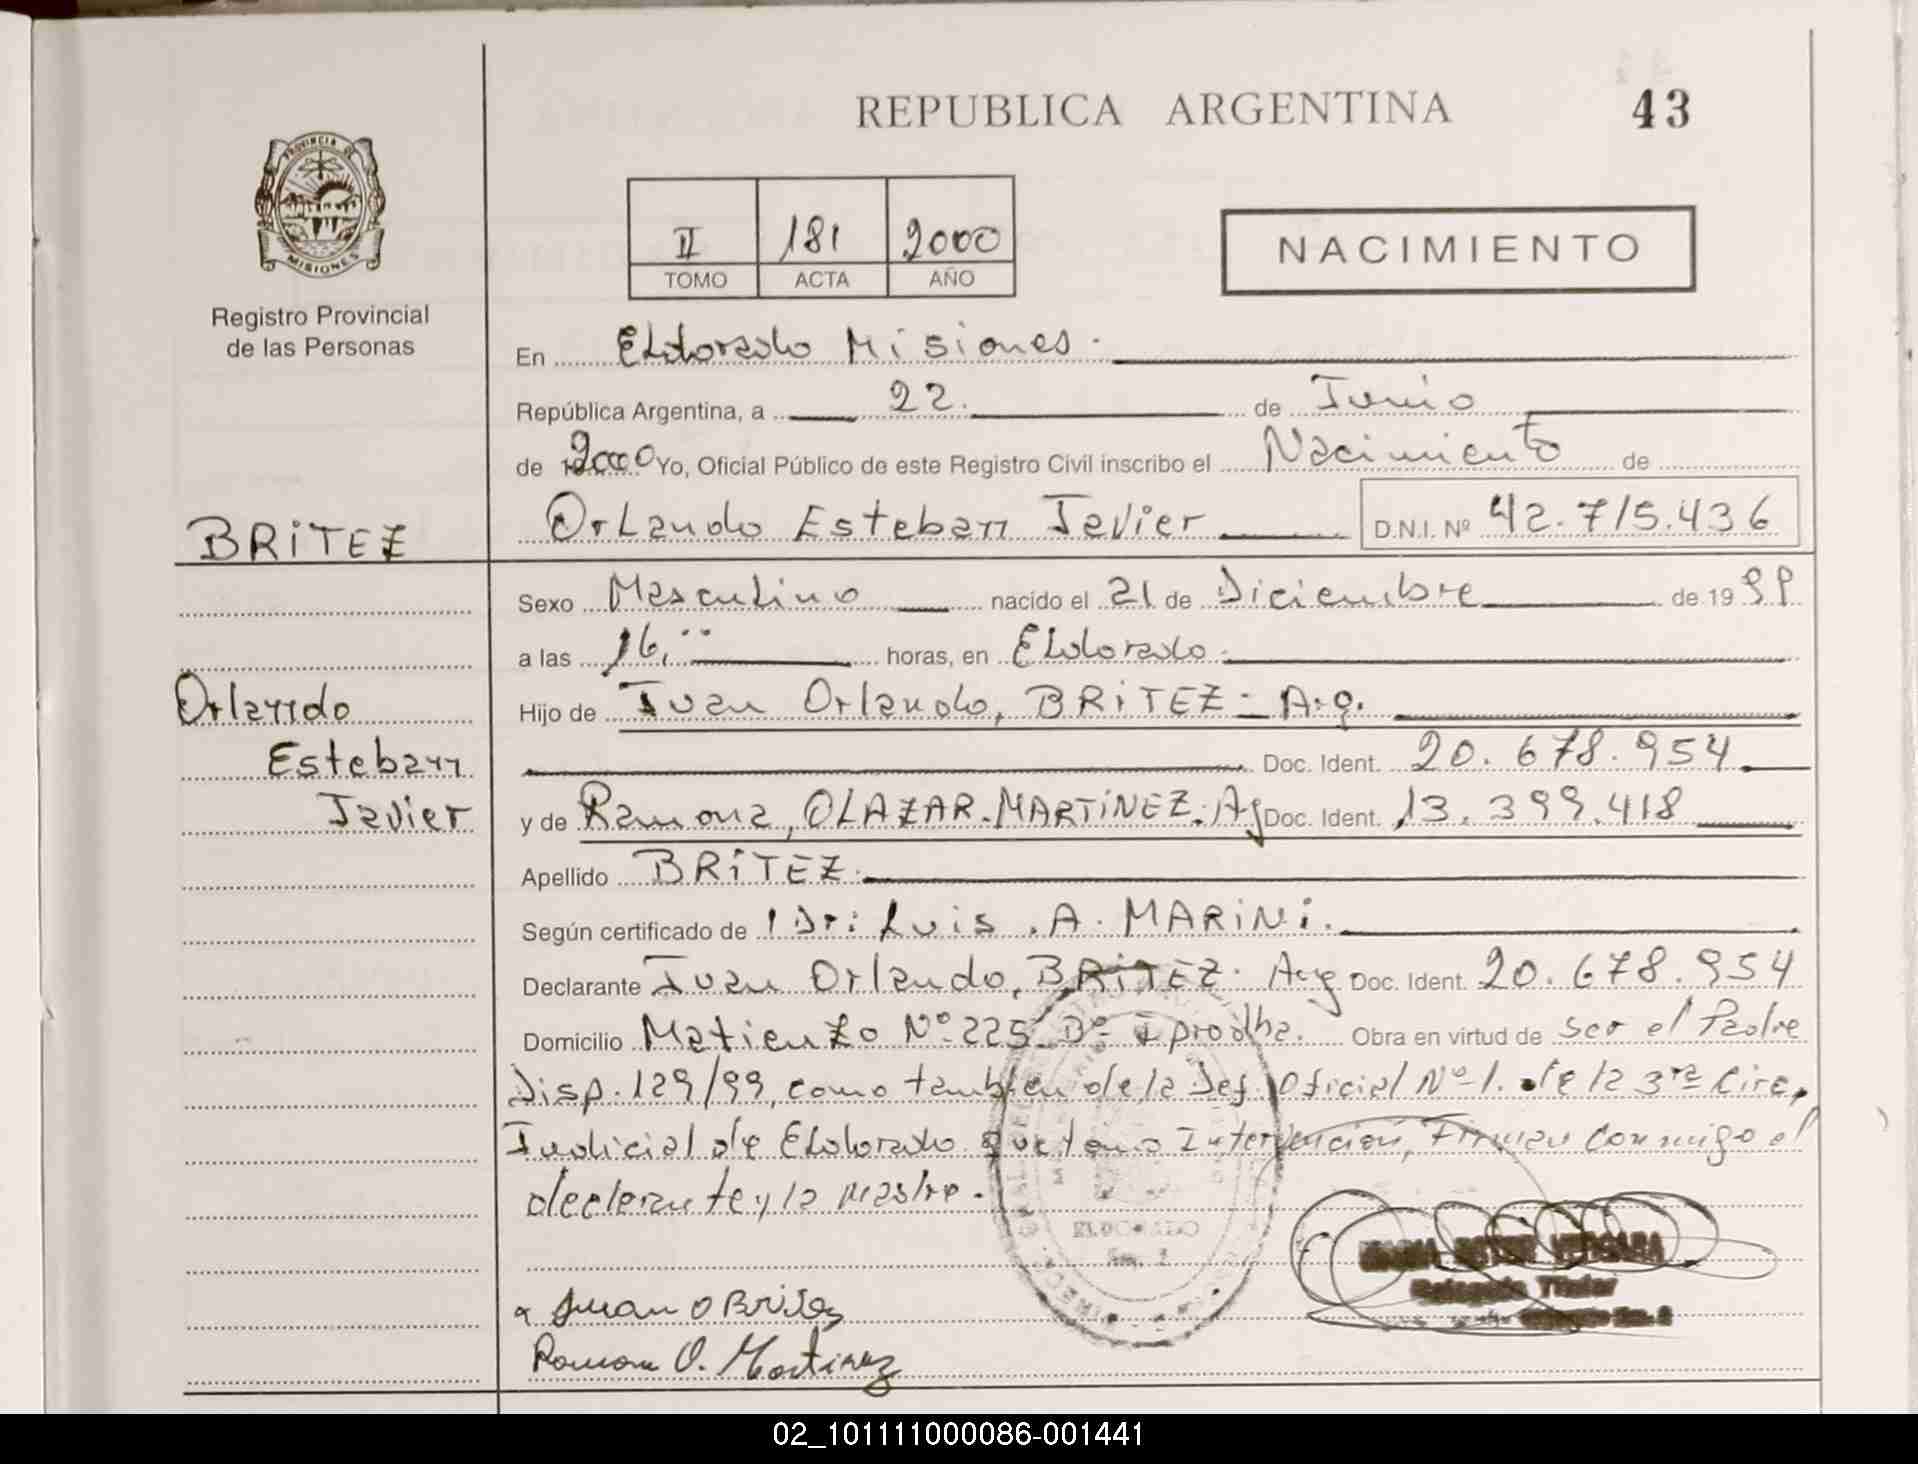 REPUBLICA ARGENTINA
43
PROVINCIA DE
MISIONES
Registro Provincial
de las Personas
II 181 2000
TOMO ACTA AÑO
NACIMIENTO
En Eldorado Misiones.
República Argentina, a 22. de Junio
de 2000 Yo, Oficial Público de este Registro Civil inscribo el Nacimiento de
BRITEZ
Orlando Esteban Javier D.N.I. Nº 42.715.436
Sexo Masculino nacido el 21 de Diciembre de 1999
a las 16, horas, en Eldorado.
Orlando
Esteban
Javier
Hijo de Juan Orlando, BRITEZ - Arg.
Doc. Ident. 20.678.954
y de Ramona, OLAZAR. MARTINEZ. Ag Doc. Ident. 13.399.418
Apellido BRITEZ.
Según certificado de Dr: Luis .A. MARINI.
Declarante Juan Orlando, BRITEZ. Arg Doc. Ident. 20.678.954
Domicilio Matienzo Nº 225 Bº Iprodha. Obra en virtud de ser el Padre
Disp. 129/99, como también de la Def. Oficial Nº 1. de la 3ra Circ,
Judicial de Eldorado que tomo Intervención, Firman Conmigo el
declarante y la madre.
ELDORADO
Sec. 2
VERGARA
Delegada Titular
Juan O Britez
Ramona O. Martinez
02_101111000086-001441